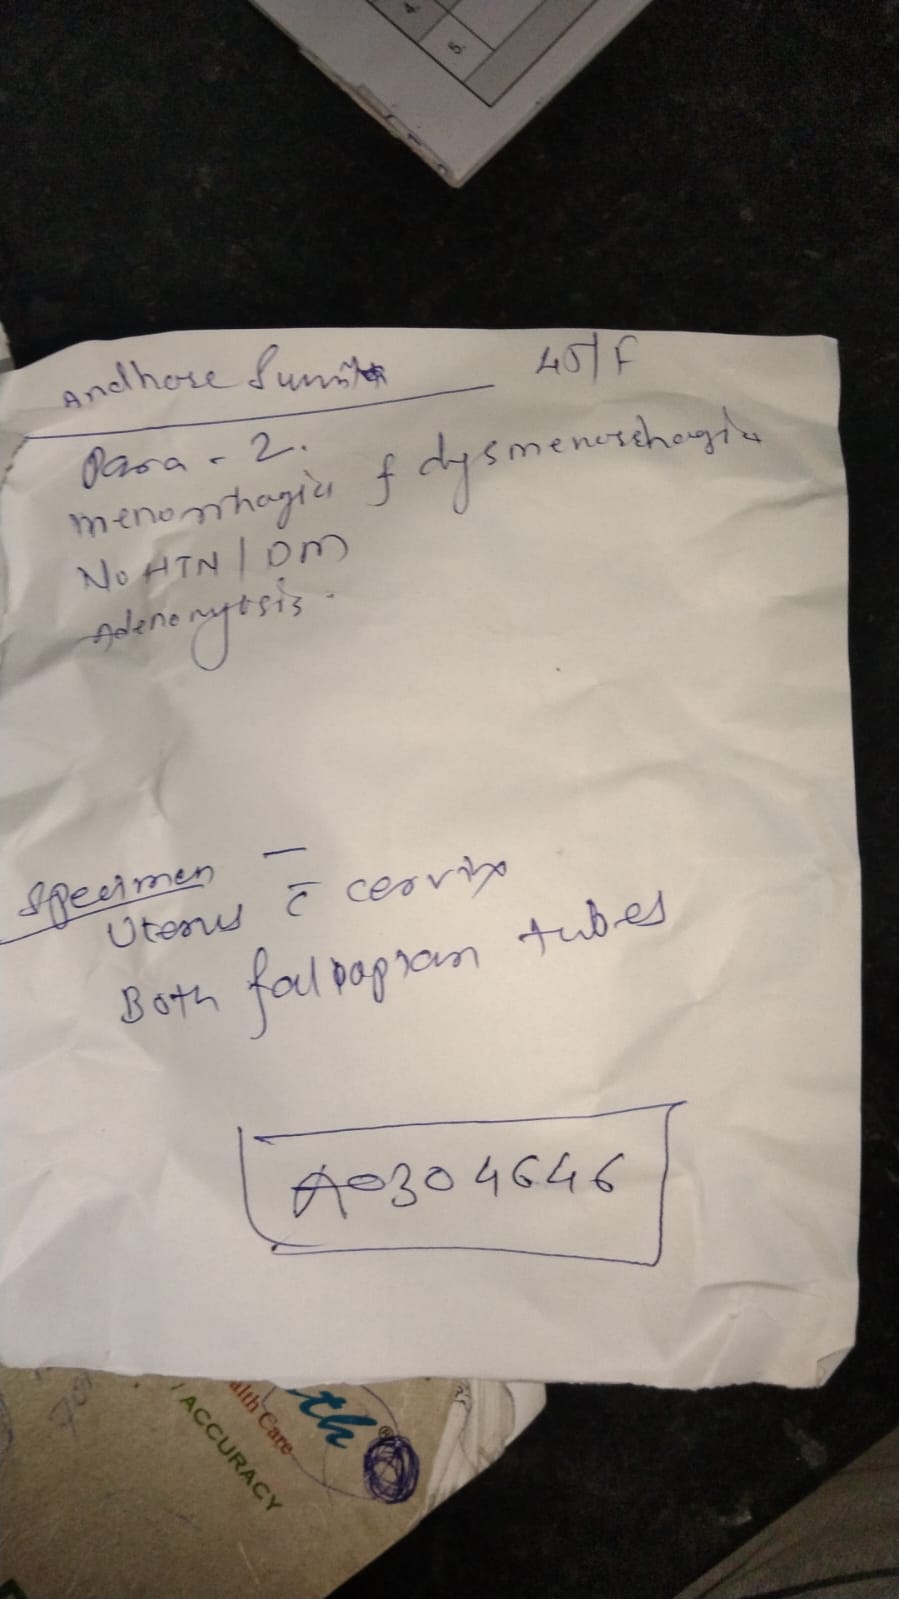 4.
5.
Andhare Sunita 45/F
Para - 2.
menorrhagia & dysmenorrhagia
No HTN / DM
Adenomyosis.
Specimen –
Uterus c̄ cervix
Both fallopian tubes
A0304646
th®
alth Care
/ ACCURACY